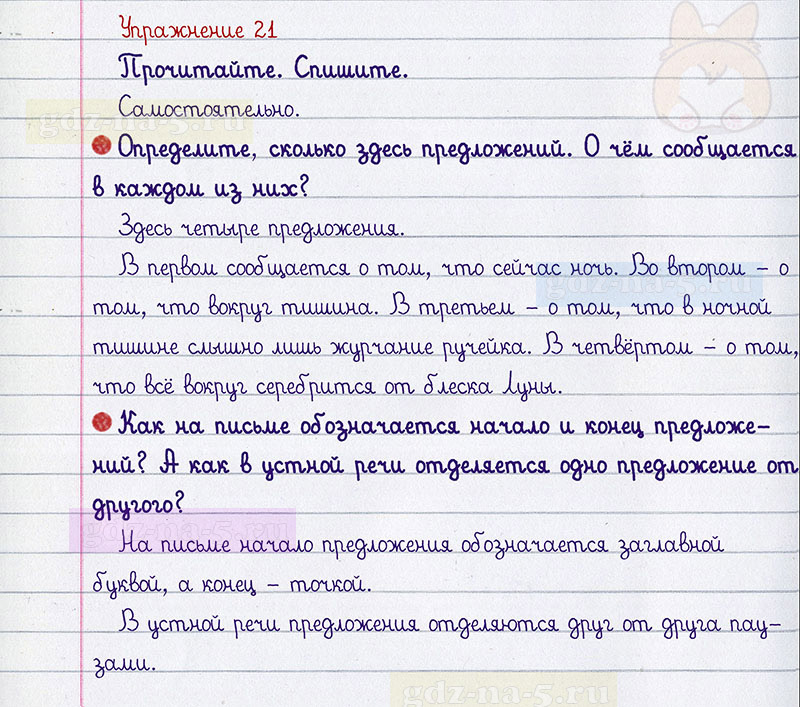 Упражнение 21
Прочитайте. Спишите.
Самостоятельно.
gdz-na-5.ru
Определите, сколько здесь предложений. О чём сообщается
в каждом из них?
Здесь четыре предложения.
В первом сообщается о том, что сейчас ночь. Во втором – о
gdz-na-5.ru
том, что вокруг тишина. В третьем – о том, что в ночной
тишине слышно лишь журчание ручейка. В четвёртом – о том,
что всё вокруг серебрится от блеска Луны.
Как на письме обозначается начало и конец предложе-
ний? А как в устной речи отделяется одно предложение от
другого?
gdz-na-5.ru
На письме начало предложения обозначается заглавной
буквой, а конец – точкой.
В устной речи предложения отделяются друг от друга пау-
зами.
gdz-na-5.ru